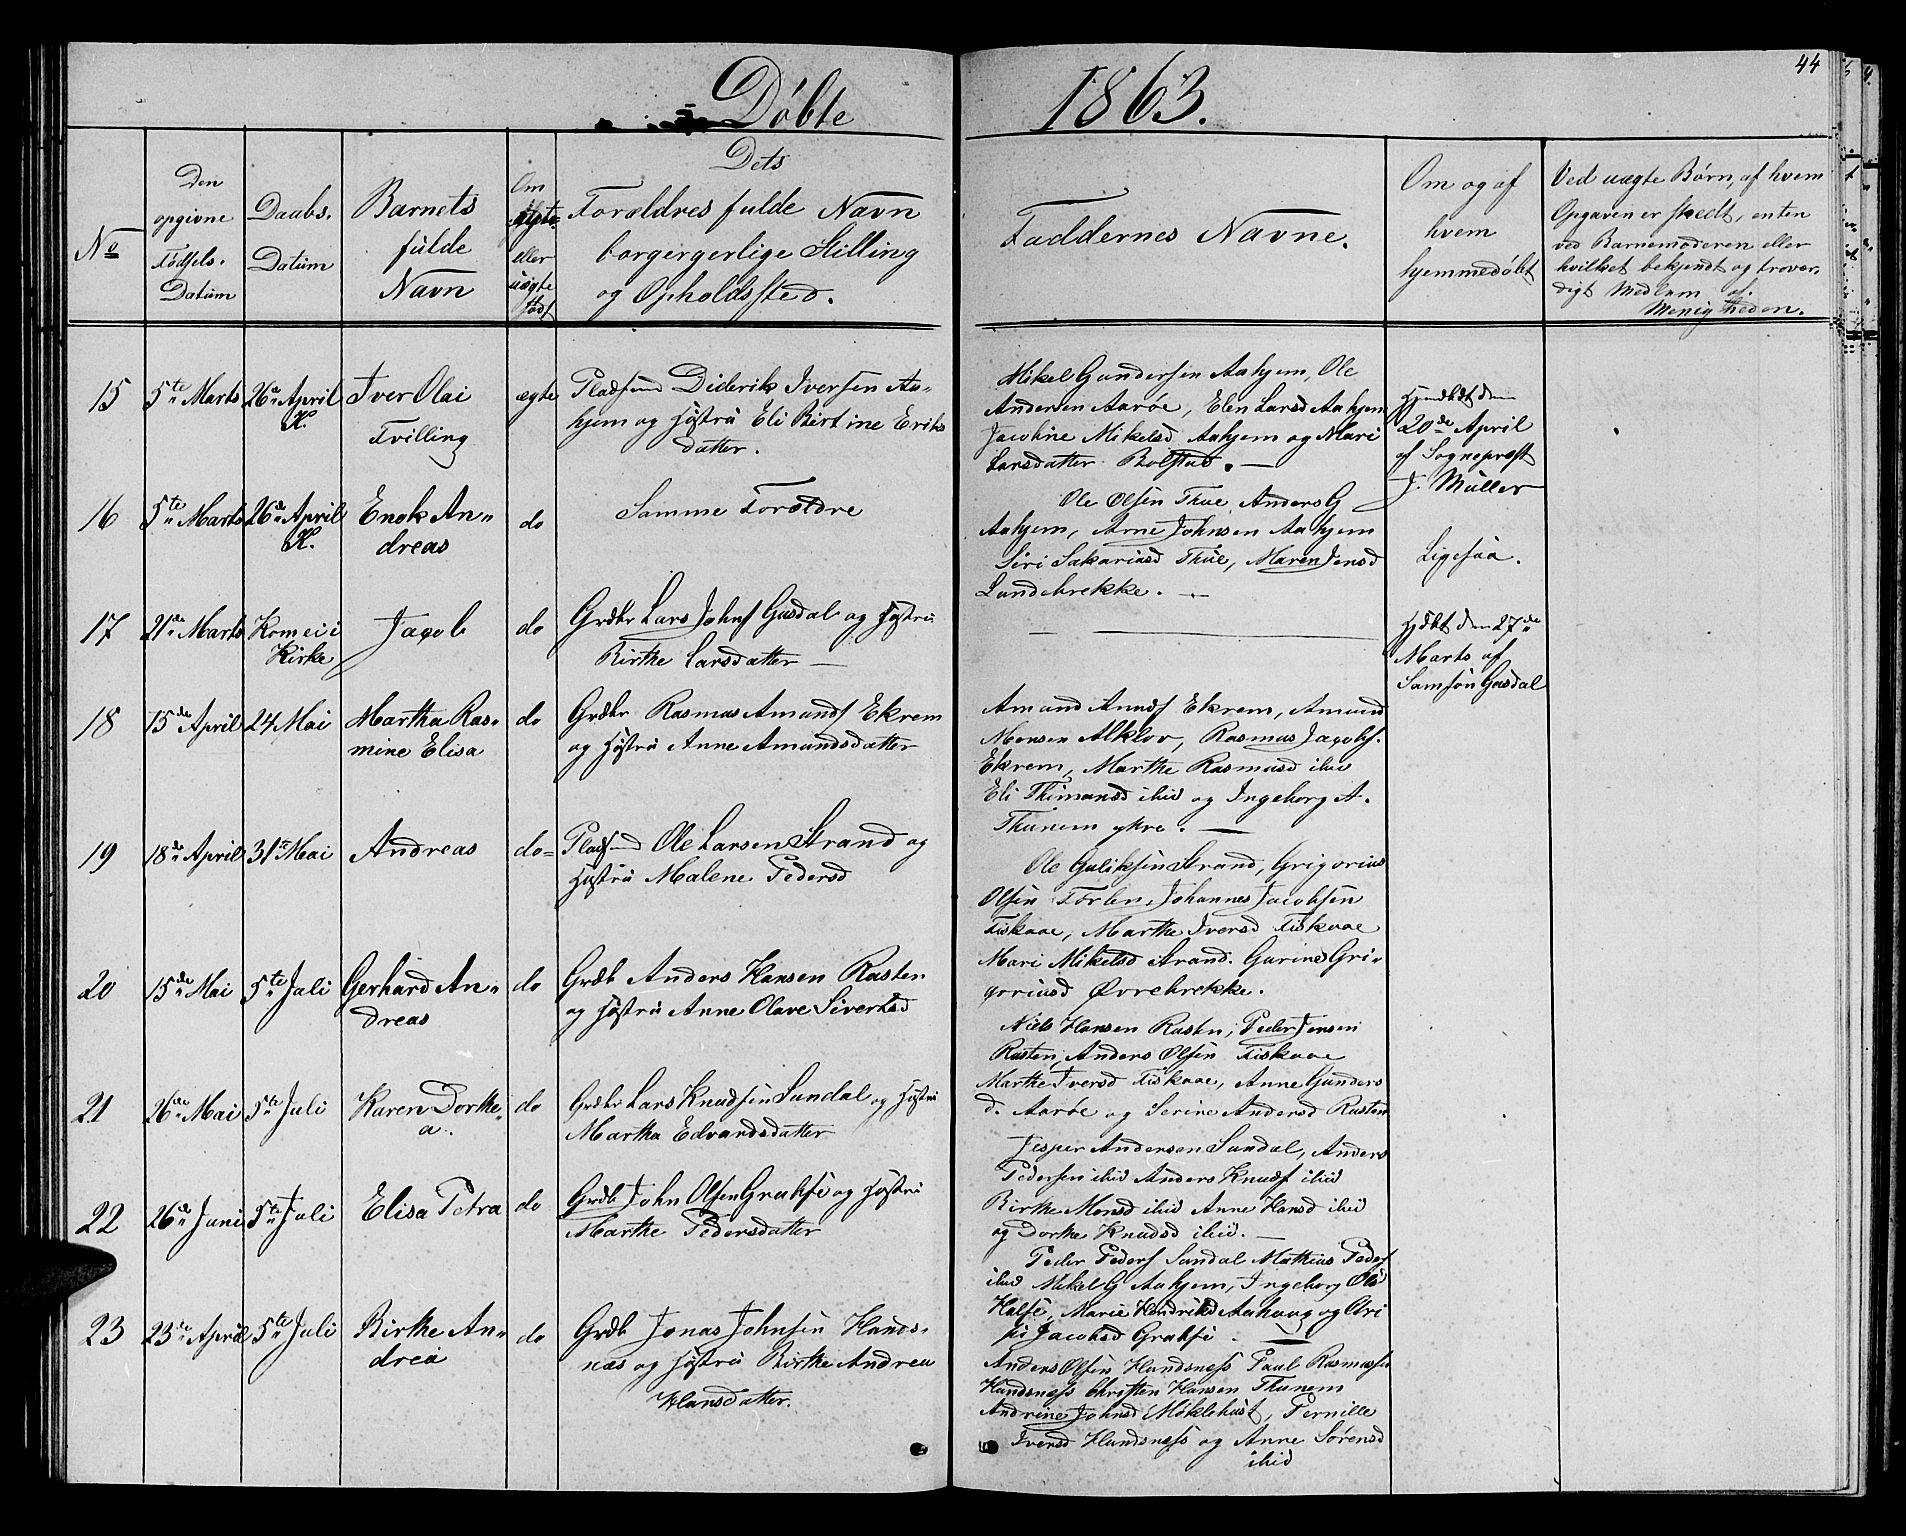 Døbte 1863.
44
No
Den opgivne Fødsels-Datum
Daabs-Datum
Barnets fulde Navn
Om ægte eller uægte født
Dets Forældres fulde Navn borgergerlige Stilling og Opholdssted.
Faddernes Navne.
Om og af hvem hjemmedøbt
Ved uægte Børn, af hvem Opgaven er skedt, enten ved Barnemoderen eller hvilket bekjendt og troverdigt Medlem af Menigheden.
15
5te Marts
26de April K.
Iver Olai Tvilling
ægte
Pladsmd Diderik Iversen Aahjem og Hustru Eli Birtine Eriksdatter.
Mikel Gundersen Aahjem, Ole
Andersen Aarøe, Elen Larsd Aahjem
Jacobine Mikelsd Aahjem og Mari
Larsdatter Bolstad.
Hjemdøbt den
20de April
af Sogneprest
J. Müller
16
5te Marts
26de April K.
Enok Andreas
do
Samme Forældre
Ole Olsen Thue, Anders G
Aahjem, Arne Johnsen Aahjem
Siri Sakariasd Thue, Maren Jensd
Landebrekke.
Ligesaa.
17
21de Marts
Kom ei i Kirke
Jacob
do
Grdbr Lars Johns Gusdal og Hustru
Birthe Larsdatter
Hjdbt den 27de
Marts af
Samson Gusdal
18
15de April
24 Mai
Martha Rasmine Elisa
do
Grdbr Rasmus Amunds Ekrem
og Hustru Anne Amundsdatter
Amund Amds Ekrem, Amund
Monsen Alklov, Rasmus Jacobs.
Ekrem, Marthe Rasmusd ibid
Eli Thimansd ibid og Ingeborg A.
Thunem ykre.
19
18de April
31te Mai
Andreas
do
Pladsmd Ole Larsen Strand og
Hustru Malene Pedersd
Ole Guliksen Strand, Grigorius
Olsen Torlen, Johannes Jacobsen
Fiskaae, Marthe Iversd Fiskaae
Mari Mikelsd Strand. Gurine Grigoriusd Øvrebrekke.
20
15de Mai
5te Juli
Gerhard Andreas
do
Grdb Anders Hansen Rasten
og Hustru Anne Olave Sivertsd
Niels Hansen Rusten, Peder Jensen
Rusten, Anders Olsen Fiskaae
Marthe Iversd Fiskaae, Anne Gundersd. Aarøe og Serine Andersd Rusten
21
26de Mai
5te Juli
Karen Dorthea.
do
Grdbr Lars Knudsen Sundal og Hustru
Martha Edvardsdatter
Jesper Andersen Sundal, Anders
Pedersen ibid Anders Knuds ibid
Birthe Monsd ibid Anne Hansd ibid
og Dorthe Knudsd ibid.
22
26de Juni
5te Juli
Elisa Petra
do
Grdb John Olsen Grahse og Hustru
Marthe Pedersdatter
Peder Peders Sundal Mathias Peders
ibid Mikel G Aahjem, Ingeborg Olsd
Halse, Marie Hendriksd Aahaug og
Jacobsd Grahse.
23
23de April
5te Juli
Birthe Andrea
do
Grdb Jonas Johnsen Hundsnæs og Hustru Birthe Andrea
Hansdatter.
Anders Olsen Hundsness Paul Rasmussen
Hundsness Christen Hansen Thunem
Andrine Johnsd Møklebust, Pernille
Iversd Hundsness og Anne Sørensd
ibid